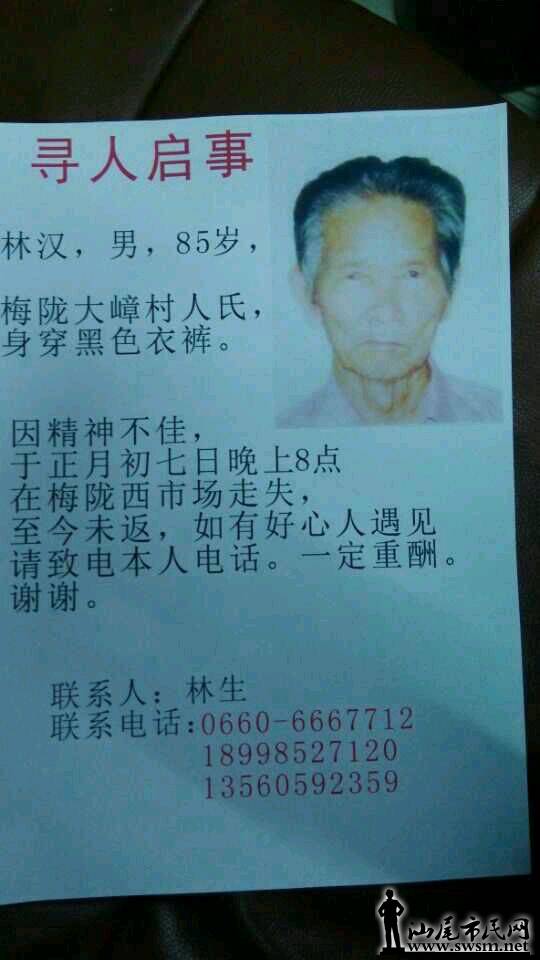 寻人启事
林汉，男，85岁，
梅陇大嶂村人氏，
身穿黑色衣裤。
因精神不佳，
于正月初七日晚上8点
在梅陇西市场走失，
至今未返，如有好心人遇见
请致电本人电话。一定重酬。
谢谢。
联系人：林生
联系电话：0660-6667712
18998527120
13560592359
汕尾市民网
www.swsm.net